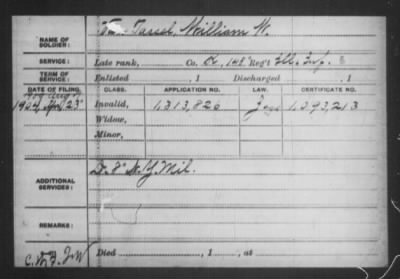 NAME OF SOLDIER: Van Tassel, William W.
SERVICE: Late rank, Co. A, 148 Reg't Ill. Inf.
TERM OF SERVICE: Enlisted , 1 Discharged , 1
DATE OF FILING. CLASS. APPLICATION NO. LAW. CERTIFICATE NO.
1904 23 Invalid, 1,313,826 1,093,213
Widow,
Minor,
ADDITIONAL SERVICES: N.Y. Mil.
REMARKS:
Died , 1 , at